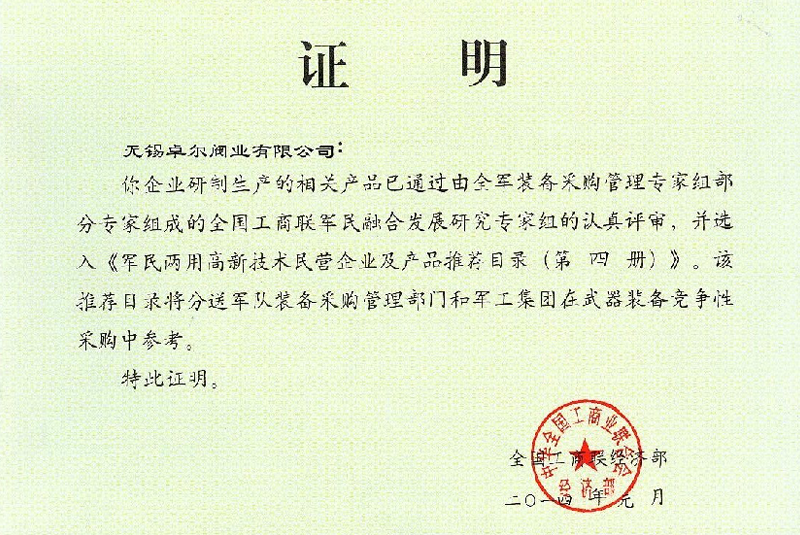 证 明
无锡卓尔阀业有限公司：
你企业研制生产的相关产品已通过由全军装备采购管理专家组部
分专家组成的全国工商联军民融合发展研究专家组的认真评审，并选
入《军民两用高新技术民营企业及产品推荐目录（第 四 册）》。该
推荐目录将分送军队装备采购管理部门和军工集团在武器装备竞争性
采购中参考。
特此证明。
中华全国工商业联合会
经济部
全国工商联经济部
二〇一四 年 元 月